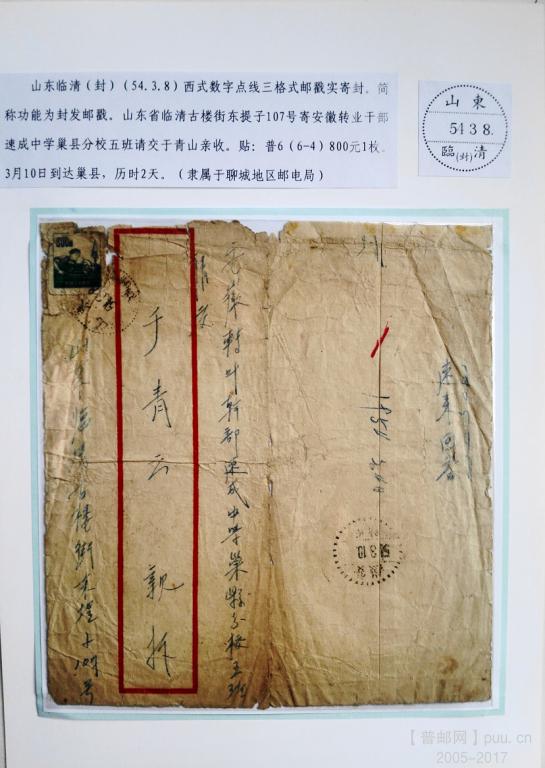 山东临清(封)(54.3.8)西式数字点线三格式邮戳实寄封。简
称功能为封发邮戳。山东省临清古楼街东提子107号寄安徽转业干部
速成中学巢县分校五班请交于青山亲收。贴:普6(6-4)800元1枚。
3月10日到达巢县,历时2天。(隶属于聊城地区邮电局)
山東
54 3 8.
臨(封)清
800
安徽轉业幹部速成中学巢縣分校五班
请交
于青云 親拆
山东临清古楼街东堤
号
54.3.10
速来回答
【普邮网】puu.cn
2005-2017